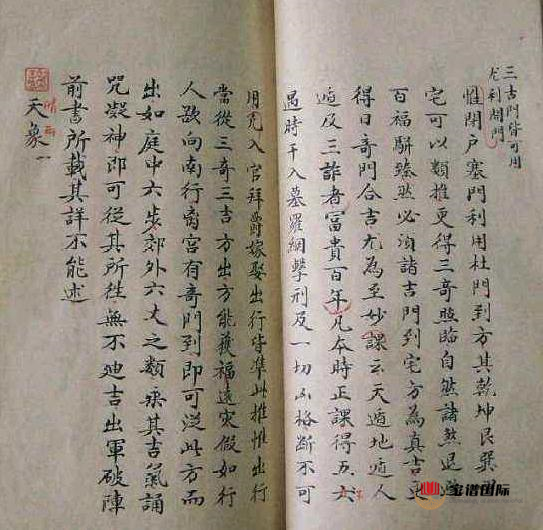 三吉門皆可用
尤利開門
惟閉戶塞門利用杜門到方其乾坤艮巽
宅可以類推更得三奇照臨自然諸煞退避
百福駢臻然必須諸吉門到宅方為真吉更
得日奇門合吉尤為至妙課云天遁地遁人
遁及三詐者富貴百年凡本時正課得五六
遇時干入墓羅網擊刑及一切凶格斷不可
用 入官拜爵嫁娶出行皆準此推惟出行
當從三奇三吉方出方能獲福遠災假如行
人欲向南行离宮有奇門到即可從此方而
出如庭中六步郊外六丈之類乘其吉氣誦
咒凝神即可從其所往無不迪吉出軍破陣
前書所載其詳不能述
天象一
晴雨
金谱国际